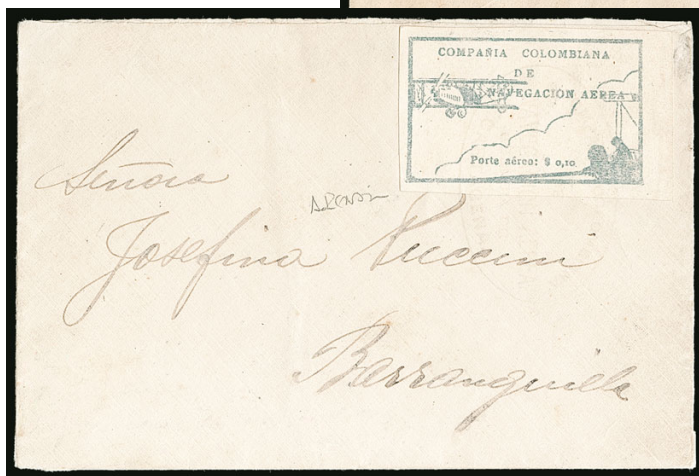 COMPAÑIA COLOMBIANA
DE
NAVEGACIÓN AEREA
Porte aéreo: $ 0,10
Señora
Josefina Puccini
Barranquilla